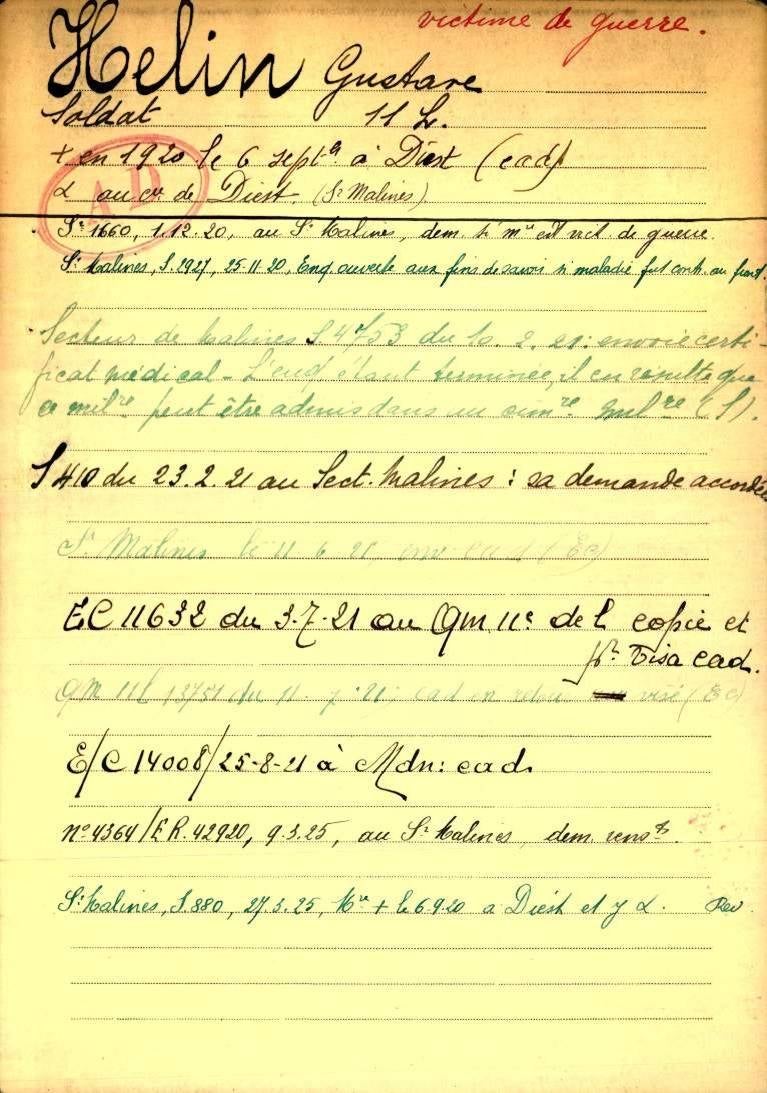 victime de guerre.
Helin Gustave
Soldat 11 L.
+ en 1920 le 6 sept à Diest (cad)
AD
au cre de Diest. (Sr Malines).
Sr 1660, 1.12.20, au Sr Malines, dem. si mre est vict. de guerre.
Sr Malines, S.2927, 25.11.20, Enq. ouverte aux fins de savoir si maladie fut cont. au front.
Secteur de Malines S 4753 du 10. 2. 21: envoie certi-
ficat médical - L'enq étant terminée, il en résulte que
ce milre peut être admis dans un cimre milre (S).
S 410 du 23.2.21 au Sect. Malines : sa demande accordée
Sr Malines le 11 6 21, cad (EC)
EC 11632 du 3.7.21 au QM 11e de l copie et
pr visa cad.
QM 11l 13751 du 11. 7. 21: cad en retour visé (EC)
E/C 14008/25-8-21 à Mdn: cad.
n° 4364/E.R. 42920, 9.3.25, au Sr Malines, dem. rensts.
Sr Malines, S.880, 27.3.25, + le 6.9.20 a Diest et y